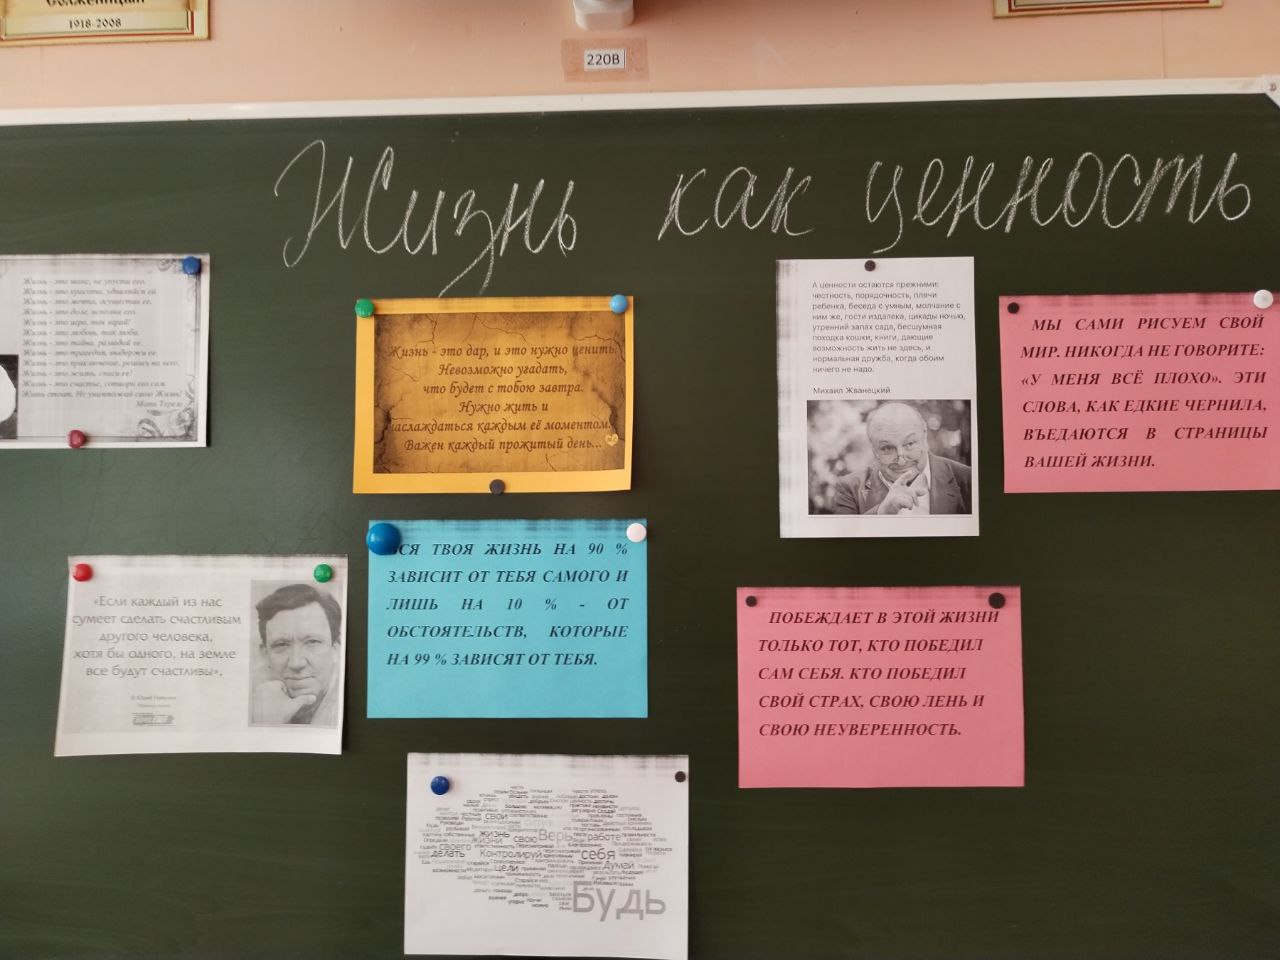 Солженицын
1918-2008
220В
Жизнь как ценность
Жизнь - это шанс, не упусти его.
Жизнь - это красота, удивляйся ей.
Жизнь - это мечта, осуществи ее.
Жизнь - это долг, исполни его.
Жизнь - это игра, так играй!
Жизнь - это любовь, так люби.
Жизнь - это тайна, разгадай ее.
Жизнь - это трагедия, выдержи ее.
Жизнь - это приключение, решись на него.
Жизнь - это жизнь, спаси ее!
Жизнь - это счастье, сотвори его сам.
Жить стоит. Не уничтожай свою Жизнь!
Мать Тереза
Жизнь - это дар, и это нужно ценить.
Невозможно угадать,
что будет с тобою завтра.
Нужно жить и
наслаждаться каждым её моментом.
Важен каждый прожитый день...
А ценности остаются прежними:
честность, порядочность, плечи
ребенка, беседа с умным, молчание с
ним же, гости издалека, цикады ночью,
утренний запах сада, бесшумная
походка кошки, книги, дающие
возможность жить не здесь, и
нормальная дружба, когда обоим
ничего не надо.
Михаил Жванецкий
МЫ САМИ РИСУЕМ СВОЙ
МИР. НИКОГДА НЕ ГОВОРИТЕ:
«У МЕНЯ ВСЁ ПЛОХО». ЭТИ
СЛОВА, КАК ЕДКИЕ ЧЕРНИЛА,
ВЪЕДАЮТСЯ В СТРАНИЦЫ
ВАШЕЙ ЖИЗНИ.
«Если каждый из нас
сумеет сделать счастливым
другого человека,
хотя бы одного, на земле
все будут счастливы».
Юрий Никулин
ВСЯ ТВОЯ ЖИЗНЬ НА 90 %
ЗАВИСИТ ОТ ТЕБЯ САМОГО И
ЛИШЬ НА 10 % - ОТ
ОБСТОЯТЕЛЬСТВ, КОТОРЫЕ
НА 99 % ЗАВИСЯТ ОТ ТЕБЯ.
ПОБЕЖДАЕТ В ЭТОЙ ЖИЗНИ
ТОЛЬКО ТОТ, КТО ПОБЕДИЛ
САМ СЕБЯ. КТО ПОБЕДИЛ
СВОЙ СТРАХ, СВОЮ ЛЕНЬ И
СВОЮ НЕУВЕРЕННОСТЬ.
свои
жизнь свою Верь работе
жизни
своего
делать Контролируй себя
цели Думай
Будь